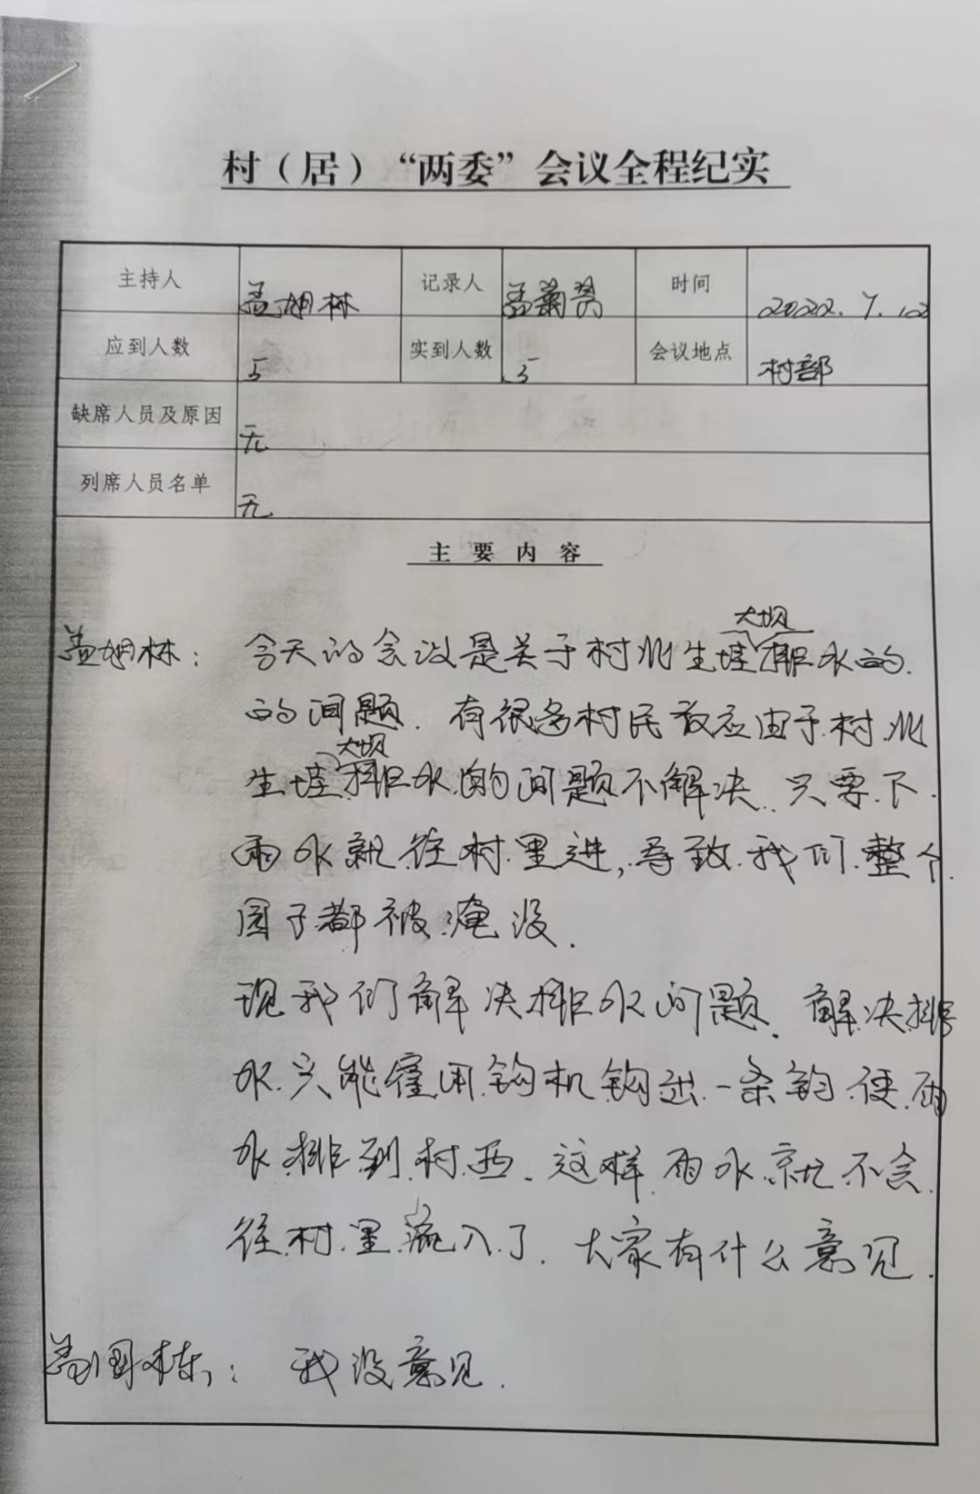 村（居）“两委”会议全程纪实
主持人 孟旭林 记录人 孟菊贤 时间 2022.7.12
应到人数 5 实到人数 5 会议地点 村部
缺席人员及原因 无
列席人员名单 无
主要内容
大坝
孟旭林：今天的会议是关于村北生埂排水的
的问题.有很多村民反应由于村北
大坝
生埂排水的问题不解决.只要下
雨水就往村里进,导致我们整个
园子都被淹没.
现我们解决排水问题.解决排
水只能雇用钩机钩出一条钩使雨
水排到村西.这样雨水就不会
往村里流入了.大家有什么意见.
孟国栋：我没意见.